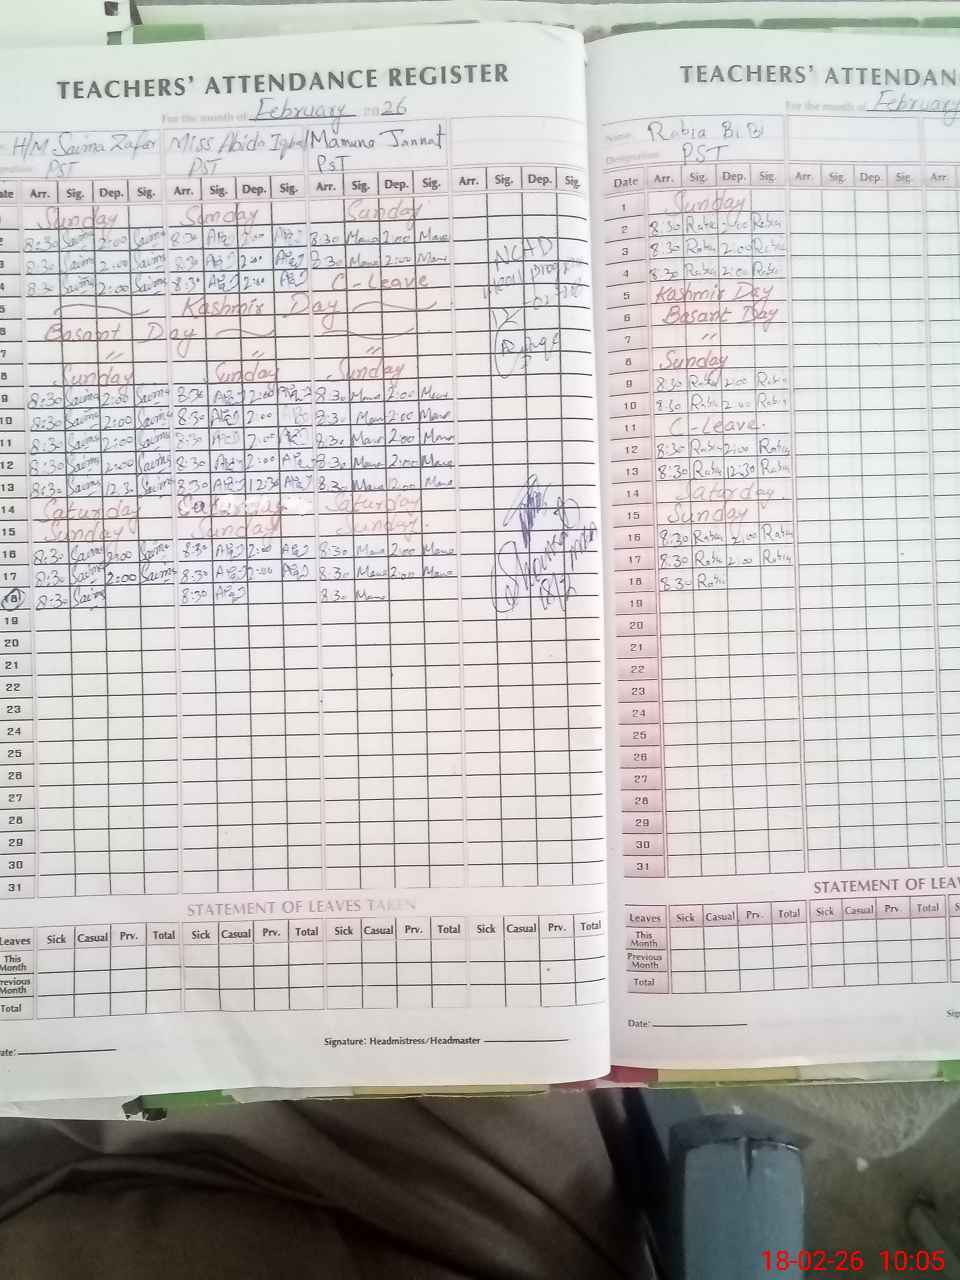 TEACHERS' ATTENDANCE REGISTER
For the month of February 2026
H/M Saima Zafar Miss Abida Iqbal Mamuna Jannat
PST PST PST
Arr. Sig. Dep. Sig. Arr. Sig. Dep. Sig. Arr. Sig. Dep. Sig. Arr. Sig. Dep. Sig.
Sunday Sunday Sunday
8:30 Saima 2:00 Saima 8:30 2:00 8.30 2:00
8:30 Saima 2:00 Saima 8:30 2:00 8.30 2:00
8:30 Saima 2:00 Saima 8:30 2:00 C-Leave
Kashmir Day
Basant Day
7 〃 〃 〃
Sunday Sunday Sunday
8:30 Saima 2:00 Saima 8:30 2:00 8.30 2:00
10 8:30 Saima 2:00 Saima 8:30 2:00 8.30 2:00
11 8:30 Saima 2:00 Saima 8:30 2:00 8.30 2:00
12 8:30 Saima 2:00 Saima 8:30 2:00 8.30 2:00
13 8:30 Saima 12:30 Saima 8:30 12:30 8.30 2:00
14 Saturday Saturday Saturday
15 Sunday Sunday Sunday.
16 8:30 Saima 2:00 Saima 8:30 2:00 8.30 2:00
17 8:30 Saima 2:00 Saima 8:30 2:00 8.30 2:00
18 8:30 Saima 8:30 8.30
19
20
21
22
23
24
25
26
27
28
29
30
31
NCHD
18/2
STATEMENT OF LEAVES TAKEN
Leaves Sick Casual Prv. Total Sick Casual Prv. Total Sick Casual Prv. Total Sick Casual Prv. Total
This Month
Previous Month
Total
Date:
Signature: Headmistress/Headmaster
TEACHERS' ATTENDAN
For the month of February
Name Rabia Bibi
Designation PST
Date Arr. Sig. Dep. Sig. Arr. Sig. Dep. Sig. Arr.
1 Sunday
2 8.30 Rabia 2:00 Rabia
3 8.30 Rabia 2:00 Rabia
4 8.30 Rabia 2:00 Rabia
5 Kashmir Day
6 Basant Day
7 〃
8 Sunday
9 8:30 Rabia 2:00 Rabia
10 8:30 Rabia 2:00 Rabia
11 C-Leave.
12 8:30 Rabia 2:00 Rabia
13 8:30 Rabia 12:30 Rabia
14 Saturday.
15 Sunday
16 8:30 Rabia 2:00 Rabia
17 8.30 Rabia 2:00 Rabia
18 8.30 Rabia
19
20
21
22
23
24
25
26
27
28
29
30
31
STATEMENT OF LEA
Leaves Sick Casual Prv. Total Sick Casual Prv. Total
This Month
Previous Month
Total
Date:
18-02-26 10:05